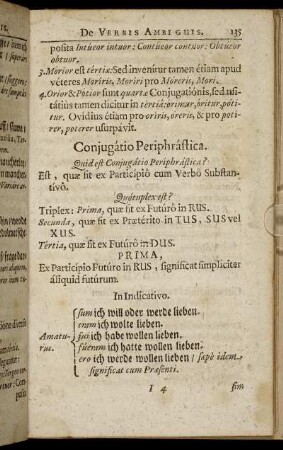 De Verbis Ambiguis. 135
posita Intúeor intuor: Contúeor contuor: Obtúeor
obtuor.
3. Morior est tértiæ: Sed invenitur tamen étiam apud
véteres Moríris, Moríri pro Móreris, Mori.
4. Orior & Pótior sunt quartæ Conjugatiónis, sed usi-
tátiùs tamen dicitur in tértia: órimur, óritur, póti-
tur. Ovidius étiam pro oríris, óreris, & pro potí-
rer, póterer usurpávit.
Conjugátio Periphrástica.
Quid est Conjugátio Periphrástica?
Est, quæ fit ex Participiô cum Verbô Substan-
tivô.
Quótuplex est?
Triplex: Prima, quæ fit ex Futúrô in RUS.
Secunda, quæ fit ex Prætéritô in TUS, SUS vel
XUS.
Tértia, quæ fit ex Futúrô in DUS.
PRIMA,
Ex Participio Futúro in RUS, significat simpliciter
áliquid futúrum.
In Indicativo.
sum ich will oder werde lieben.
eram ich wolte lieben.
Amatu- fui ich habe wollen lieben.
rus. fúeram ich hatte wollen lieben.
ero ich werde wollen lieben / sæpè idem
significat cum Præsenti.
I 4 sim